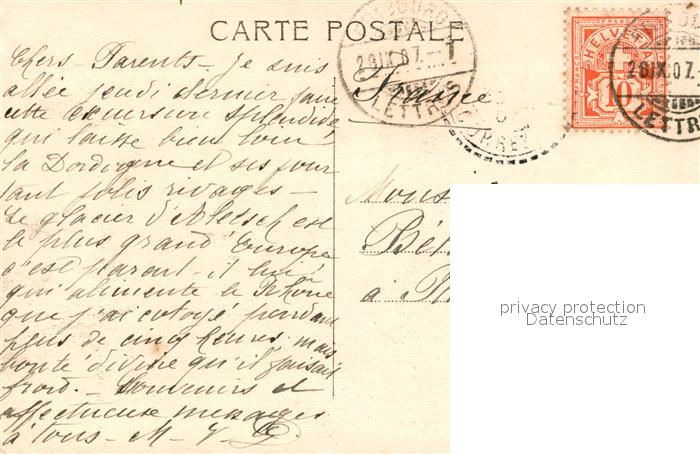 CARTE POSTALE
Chers Parents – je suis
allée jeudi dernier faire
cette excursion splendide
qui laisse bien loin
la Dordogne et ses pour
tant jolis rivages –
Le glacier d'Aletsch est
le plus grand d'Europe
c'est parait-il lui
qui alimente le Rhône
que j'ai cotoyé pendant
plus de cinq heures, mais
bonté divine qu'il faisait
froid. – Souvenirs et
affectueux messages
à tous – M – V –
France
Mons
Bét
à
28 IX 07
LETTRES
HELVETIA
10
28 IX 07
LETTR
privacy protection
Datenschutz